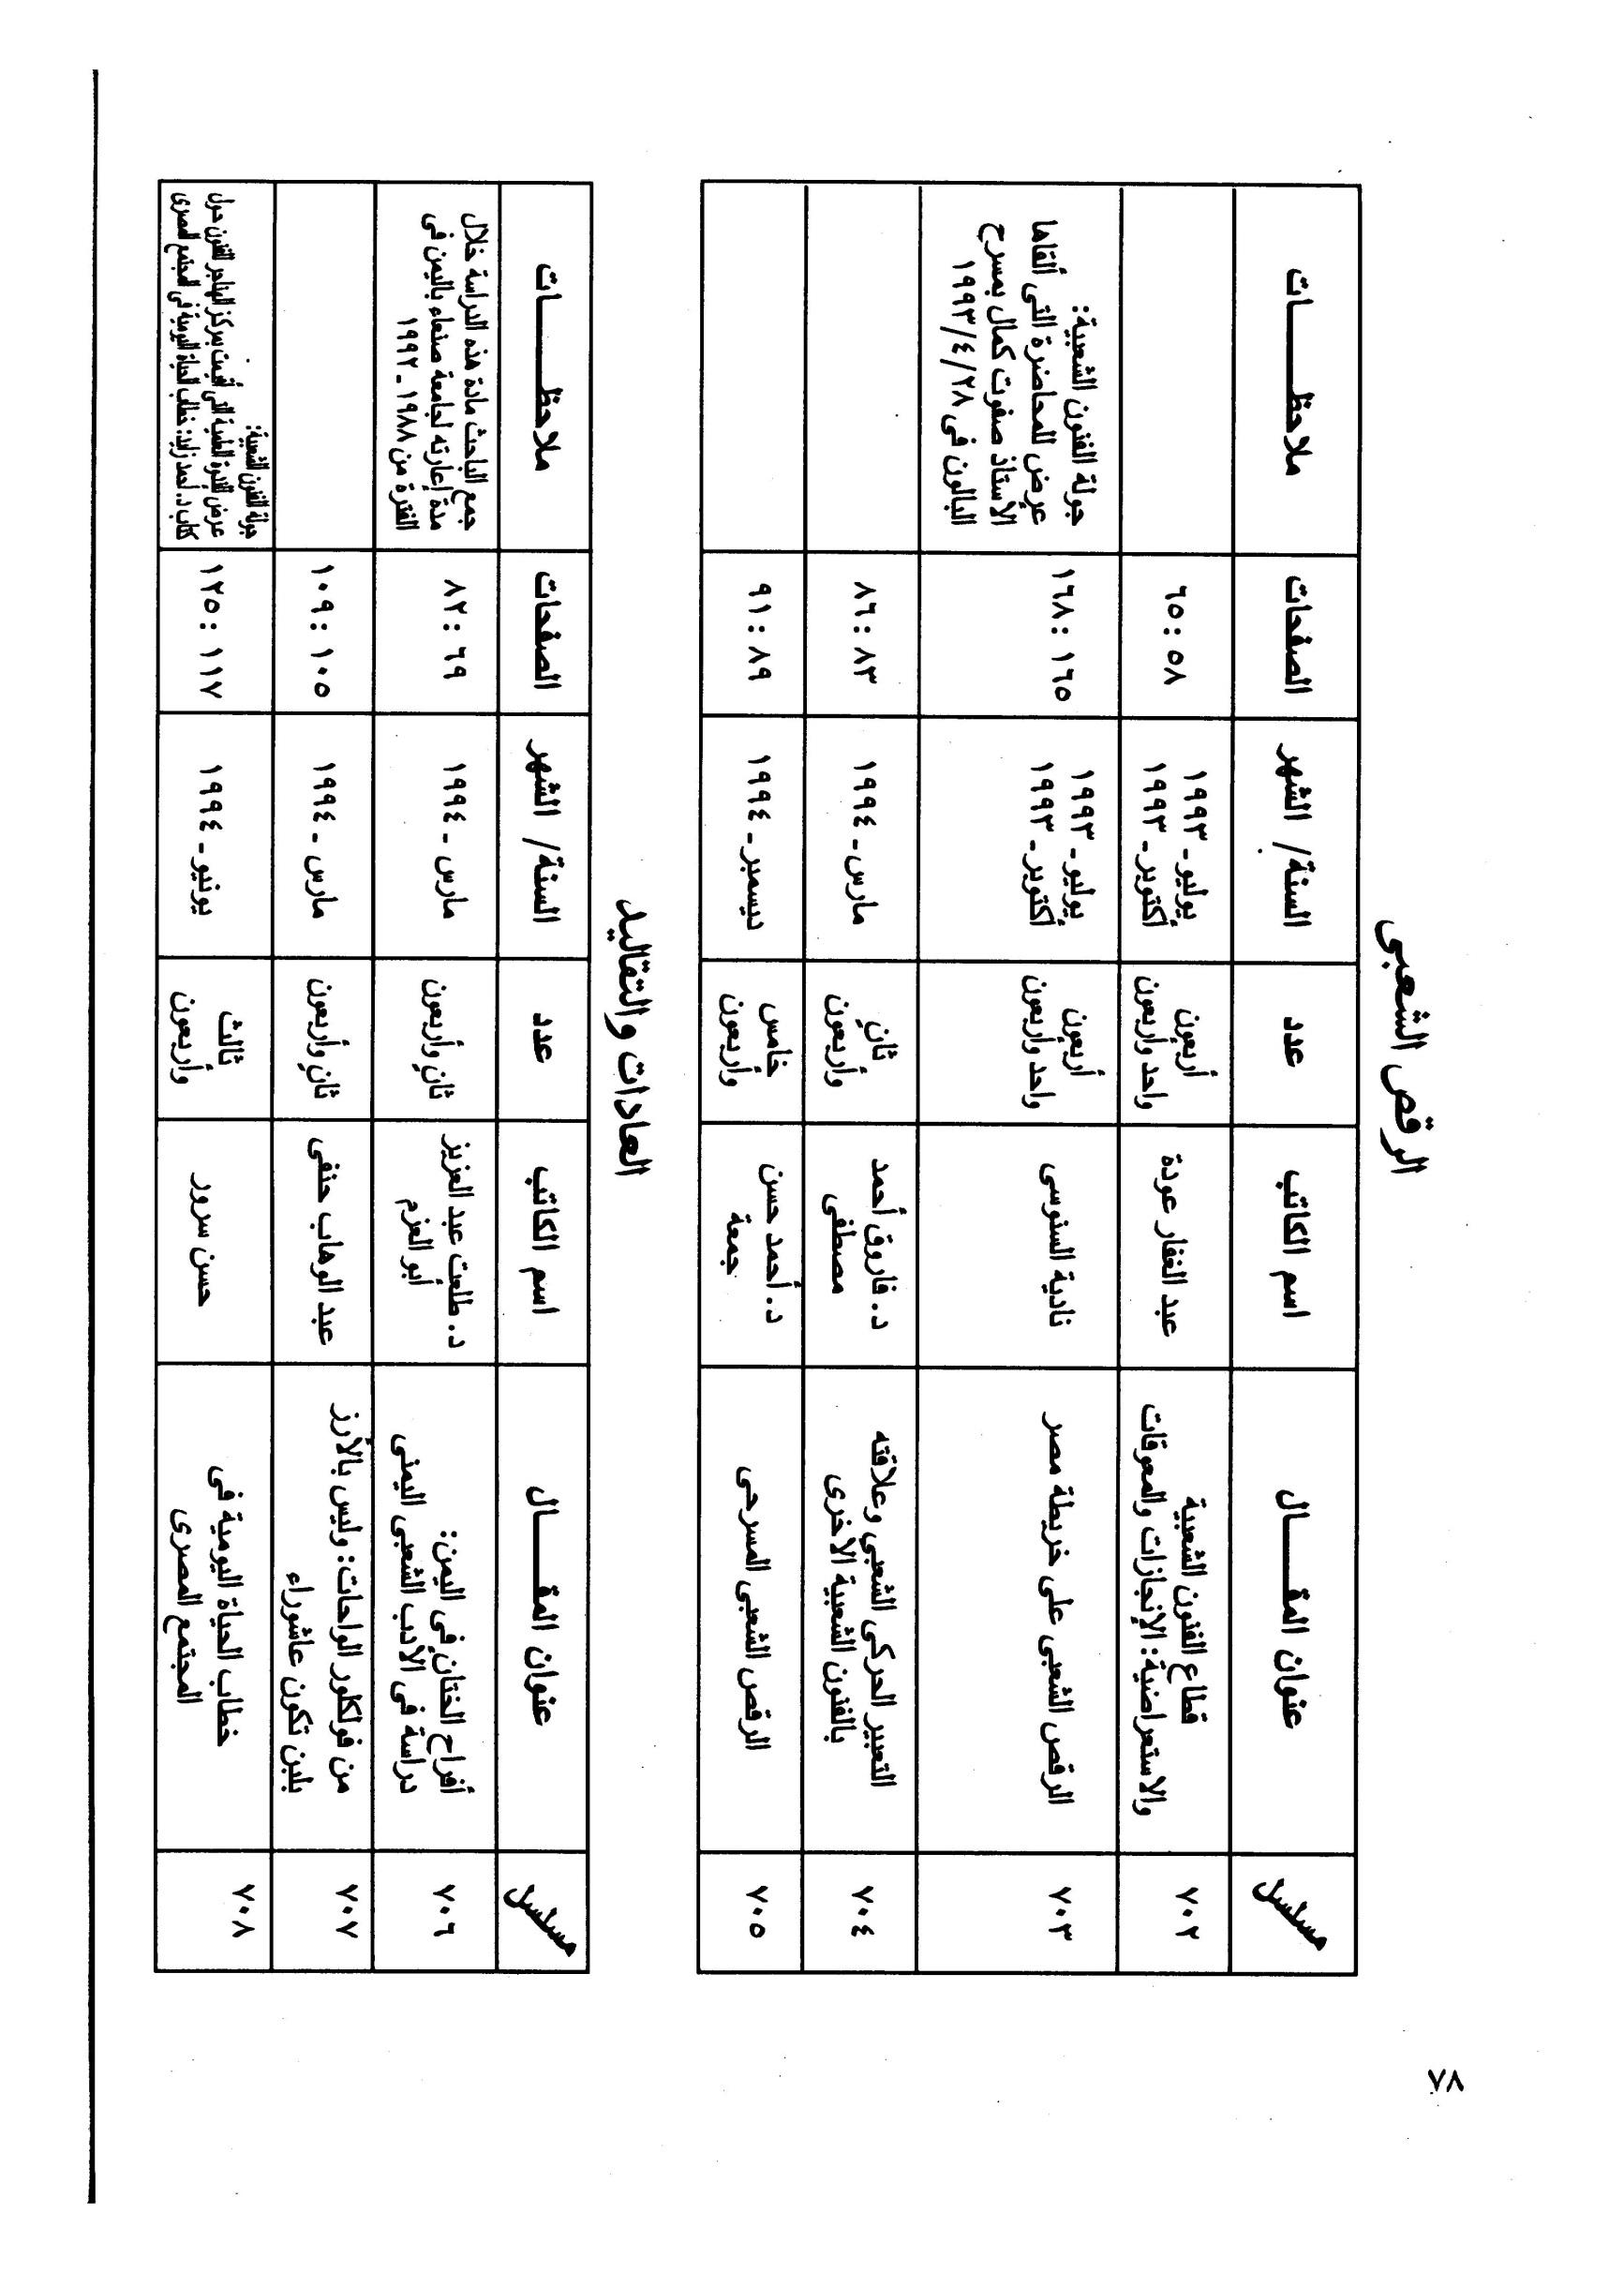 الرقص الشعبى
مسلسل
عنوان المقـــــال
اسم الكاتب
عدد
السنة/ الشهر
الصفحات
ملاحظـــــات
٧٠٢
قطاع الفنون الشعبية
والاستعراضية: الإنجازات والمعوقات
عبد الغفار عودة
أربعون
واحد وأربعون
يوليو - ١٩٩٣
أكتوبر - ١٩٩٣
٥٨ : ٦٥
٧٠٣
الرقص الشعبى على خريطة مصر
نادية السنوسى
أربعون
واحد وأربعون
يوليو - ١٩٩٣
أكتوبر - ١٩٩٣
١٦٥ : ١٦٨
جولة الفنون الشعبية:
عرض للمحاضرة التى ألقاها
الأستاذ صفوت كمال بمسرح
البالون فى ٢٨/ ٤/ ١٩٩٣
٧٠٤
التعبير الحركى الشعبي وعلاقته
بالفنون الشعبية الأخرى
د. فاروق أحمد
مصطفى
ثانٍ
وأربعون
مارس - ١٩٩٤
٨٣ : ٨٦
٧٠٥
الرقص الشعبى المسرحى
د. أحمد حسن
جمعة
خامس
وأربعون
ديسمبر - ١٩٩٤
٨٩ : ٩١
العادات والتقاليد
مسلسل
عنوان المقـــــال
اسم الكاتب
عدد
السنة/ الشهر
الصفحات
ملاحظـــــات
٧٠٦
أفراح الختان فى اليمن:
دراسة فى الأدب الشعبى اليمنى
د. طلعت عبد العزيز
أبو العزم
ثانٍ وأربعون
مارس - ١٩٩٤
٦٩ : ٨٢
جمع الباحث مادة هذه الدراسة خلال
مدة إعارته لجامعة صنعاء باليمن فى
الفترة من ١٩٨٨ - ١٩٩٢
٧٠٧
من فولكلور الواحات: وليس بالأرز
بلبن تكون عاشوراء
عبد الوهاب حنفى
ثانٍ وأربعون
مارس - ١٩٩٤
١٠٥ : ١٠٩
٧٠٨
خطاب الحياة اليومية فى
المجتمع المصرى
حسن سرور
ثالث
وأربعون
يونيو - ١٩٩٤
١١٧ : ١٢٥
جولة الفنون الشعبية:
عرض للندوة العلمية التى أقيمت بمركز الهناجر للفنون حول
كتاب د. أحمد زايد: خطاب الحياة اليومية فى المجتمع المصرى
٧٨